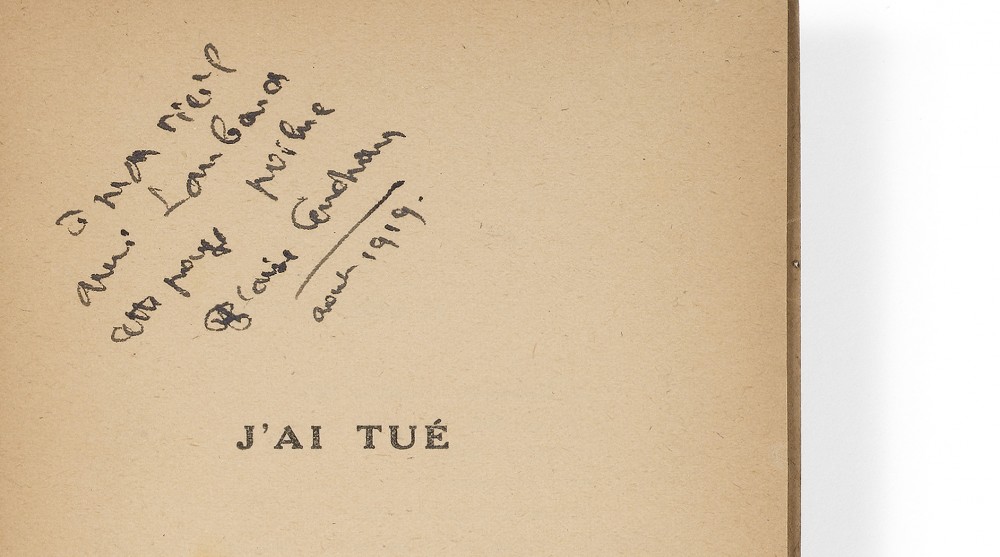 à mon vieil
ami Lambard
cette page vécue
Blaise Cendrars
août 1919.
J'AI TUÉ